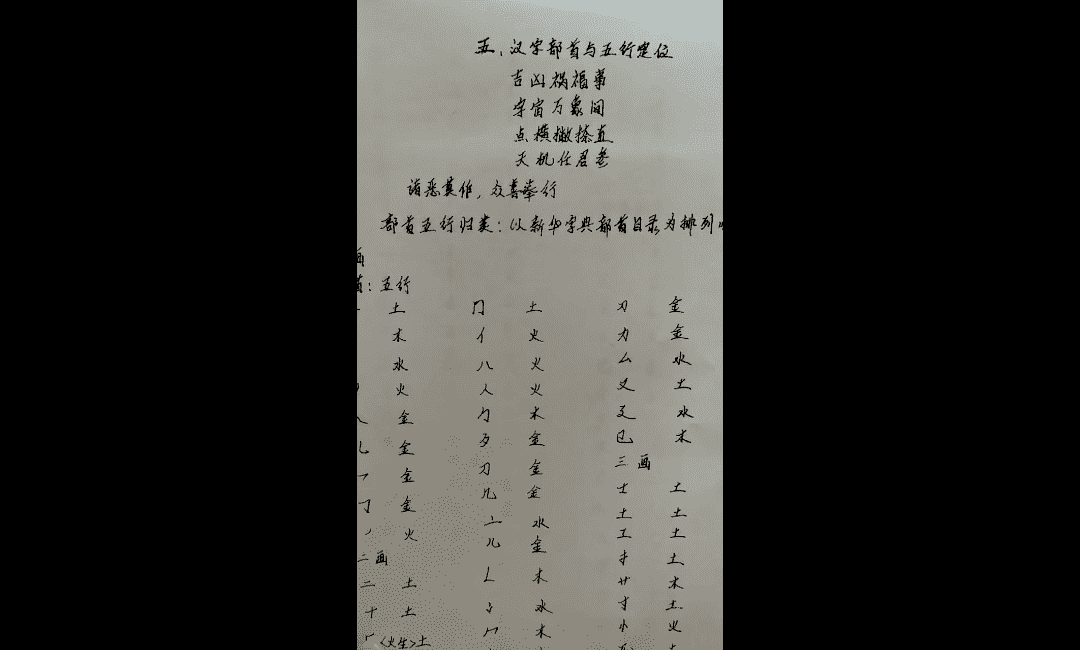 五、汉字部首与五行定位
吉凶祸福事
宇宙万象间
点横撇捺直
天机任君参
诸恶莫作,众善奉行
部首五行归类:以新华字典部首目录为排列
画
首:五行
一 土 冂 土 刃 金
木 亻 火 力 金
水 八 火 厶 水
火 人 火 又 土
金 勹 木 廴 水
金 金 㔾 木
金 刀 金 三画
金 几 金 士 土
火 亠 水 土 土
二画 儿 金 工 土
二 土 木 扌 土
十 土 冫 水 廾 木
厂<火生>土 冖 木 寸 土
小 火